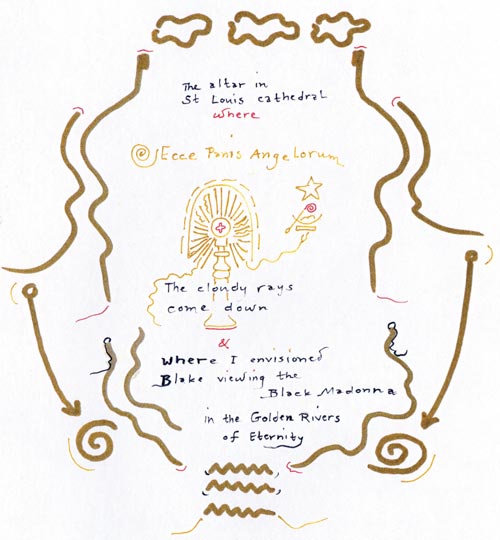 The altar in
St Louis cathedral
where
Ecce Panis Angelorum
The cloudy rays
come down
&
where I envisioned
Blake viewing the
Black Madonna
in the Golden Rivers
of Eternity